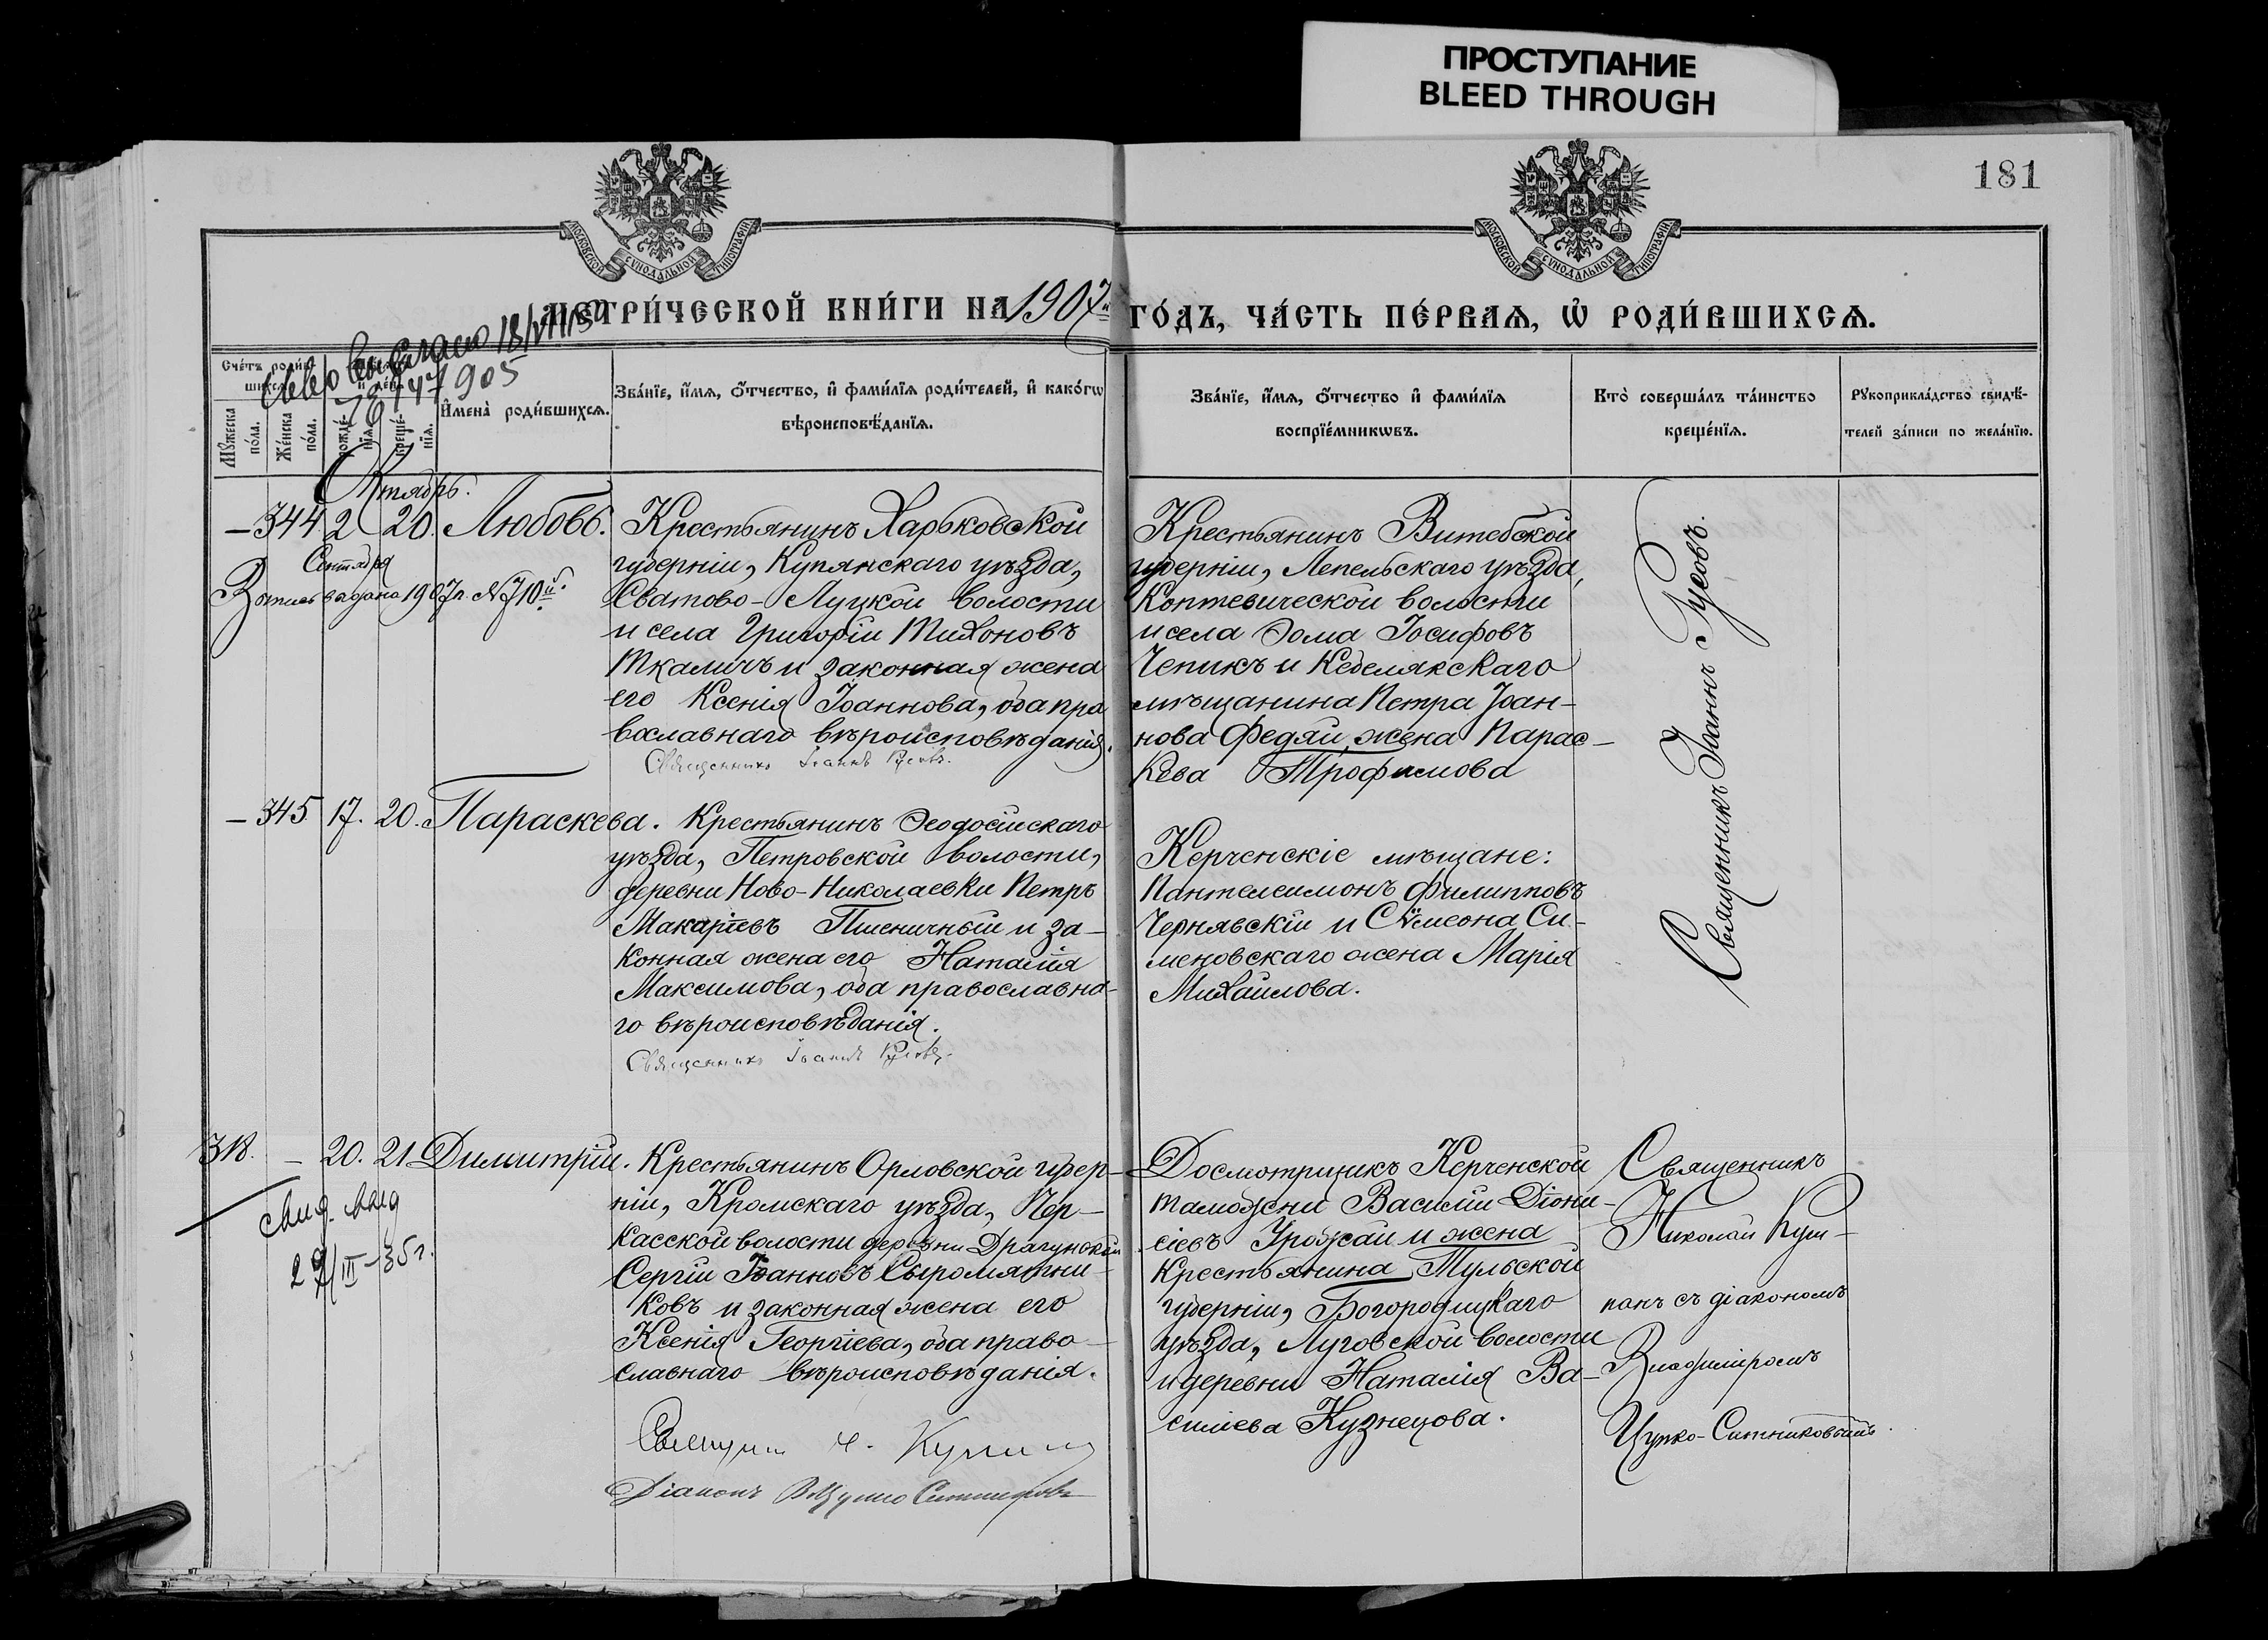 ПРОСТУПАНИЕ
BLEED THROUGH
181
МОСКОВСКОЙ СѴНОДАЛЬНОЙ ТИПОГРАФІИ
МОСКОВСКОЙ СѴНОДАЛЬНОЙ ТИПОГРАФІИ
МЕТРИ́ЧЕСКОЙ КНИ́ГИ НА 1907й ГО́ДЪ, ЧА́СТЬ ПЕ́РВАѦ, Ѡ҆ РОДИ́ВШИХСѦ.
Сче́тъ роди́вшихсѧ.
Мꙋ́жеска по́ла.
Же́нска по́ла.
рожде́нїѧ.
креще́нїѧ.
И҆мена̀ роди́вшихсѧ.
Зва́нїе, и҆́мѧ, ѻ҆́тчество, и҆ фами́лїѧ роди́телей, и҆ како́гѡ
вѣроисповѣ́данїѧ.
Зва́нїе, и҆́мѧ, ѻ҆́тчество и҆ фами́лїѧ
воспрїе́мникѡвъ.
Кто̀ соверша́лъ та́инство
креще́нїѧ.
Рꙋкоприкла́дство свидѣ́-
телей за́писи по жела́нїю.
Октябрь.
– 344 2 20. Любовь.
Сентября
Запись выдана 1907 г. № 710й.
Крестьянинъ Харьковской
губерніи, Купянскаго уѣзда,
Сватово-Луцкой волости
и села Григорій Тихоновъ
Ткаличъ и законная жена
его Ксенія Іоаннова, оба пра
вославнаго вѣроисповѣданія.
Священникъ Іоаннъ Гусовъ.
Крестьянинъ Витебской
губерніи, Лепельскаго уѣзда,
Коптевической волости
и села Ѳома Іосифовъ
Чепикъ и Кобелякскаго
мѣщанина Петра Іоан-
нова Федяй жена Парас-
кева Трофимова
Священникъ Іоаннъ Гусовъ.
– 345 17. 20. Параскева. Крестьянинъ Ѳеодосійскаго
уѣзда, Петровской волости,
деревни Ново-Николаевки Петръ
Макаріевъ Пшеничный и за-
конная жена его Наталія
Максимова, оба православна-
го вѣроисповѣданія.
Священникъ Іоаннъ Гусовъ.
Керченскіе мѣщане:
Пантелеимонъ Филипповъ
Чернявскій и Сѵмеона Си-
меновскаго жена Марія
Михаилова.
318. – 20. 21 Димитрій. Крестьянинъ Орловской губер-
свид. выд
29/III–35 г.
ніи, Кромскаго уѣзда, Чер-
касской волости деревни Драгунской
Сергій Іоанновъ Сыромятни-
ковъ и законная жена его
Ксенія Георгіева, оба право-
славнаго вѣроисповѣданія.
Діаконъ
Досмотрщикъ Керченской
таможни Василій Діони-
сіевъ Урожай и жена
крестьянина Тульской
губерніи, Богородицкаго
уѣзда, Луговской волости
и деревни Наталія Ва-
силіева Кузнецова.
Священникъ
Николай Куш-
панъ съ діакономъ
Владиміромъ
Цупко-Ситниковымъ.